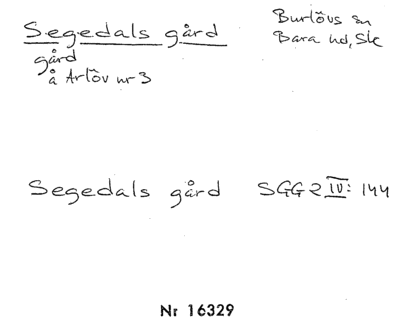 Segedals gård
Burlövs sn
Bara hd, Sk
gård
å Arlöv nr 3
Segedals gård SGG 2 IV: 144
Nr 16329